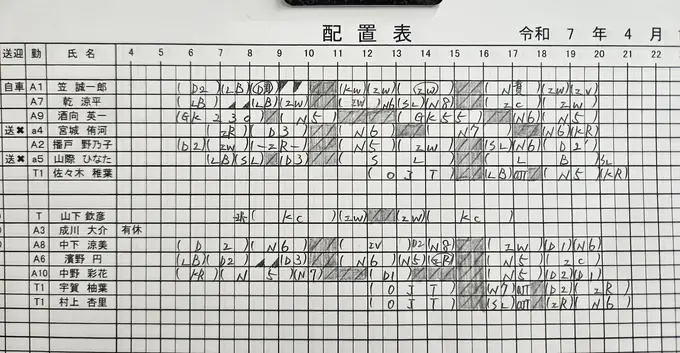 配置表 令和 7 年 4 月
送迎 勤 氏名 4 5 6 7 8 9 10 11 12 13 14 15 16 17 18 19 20 21 22
自車 A1 笠 誠一郎 (D2)(LB) (KW)(ZW)(ZW) (N (ZW)(ZV)
A7 乾 涼平 (LB) (LB)(ZW) (ZW)N6(SL)(N8) (ZC)(ZW)
A9 酒向 英一 (GK230) (N5) (GK55) (N6)(N5)
送✖ a4 宮城 侑河 (ZR)(D3) (N6) (N7) (N6)(KR)
A2 播戸 野乃子 (D2)(ZW)(-ZR-) (N5)(ZW) (SL)(N6)(D2')
送✖ a5 山際 ひなた (LB)(SL)(D3) (SL) (LB)SL
T1 佐々木 稚葉 (OJT) (LB)OJT (N5)(KR)
T 山下 欽彦 (KC)(ZW) (ZW)(KC)
A3 成川 大介 有休
A8 中下 涼美 (D2)(N6) (ZV)D2(N8) (ZW)(D1)(N6)
A6 濱野 円 (LB)(D2) (D3) (N6)(N5)(ZR) (N5)(ZC)
A10 中野 彩花 (KR)(N5)(N7) (D1) (N5)(D2)(D1)
T1 宇賀 柚葉 (OJT) (N7)OJT (D2)(ZR)
T1 村上 杏里 (OJT) (SL)OJT (ZR)(N6)